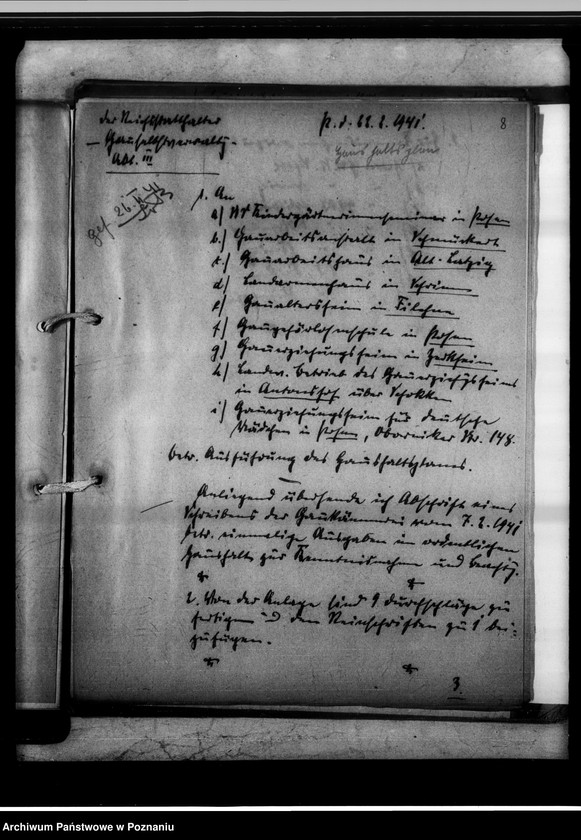 Der Reichsstatthalter
— Gauselbstverwaltg. —
Abt. III
P. d. 22. 2. 1941
8
Haushaltsplan
gef 26. II 41
1. An
a) NS Kindergärtnerinnenseminar in Posen
b.) Gauarbeitsanstalt in Schmückert
c.) Gauarbeitshaus in Alt-Latzig
d) Landarmenhaus in Schrimm
e) Gaualtersheim in Filehne
f) Gaugehörlosenschule in Posen
g) Gauerziehungsheim in Zerkheim
h) Landw. Betrieb des Gauerziehgsheims
in Antonshof über Schokken
i) Gauerziehungsheim für deutsche
Mädchen in Posen, Oborniker Str. 148.
betr. Ausführung des Haushaltsplanes.
Anliegend übersende ich Abschrift eines
Schreibens der Gaukämmerei vom 7. 2. 1941
betr. einmalige Ausgaben im ordentlichen
Haushalt zur Kenntnisnahme und Beachtg.
2. Von der Anlage sind 9 Durchschläge zu
fertigen u. d den Reinschriften zu 1 bei-
zufügen.
3
Archiwum Państwowe w Poznaniu